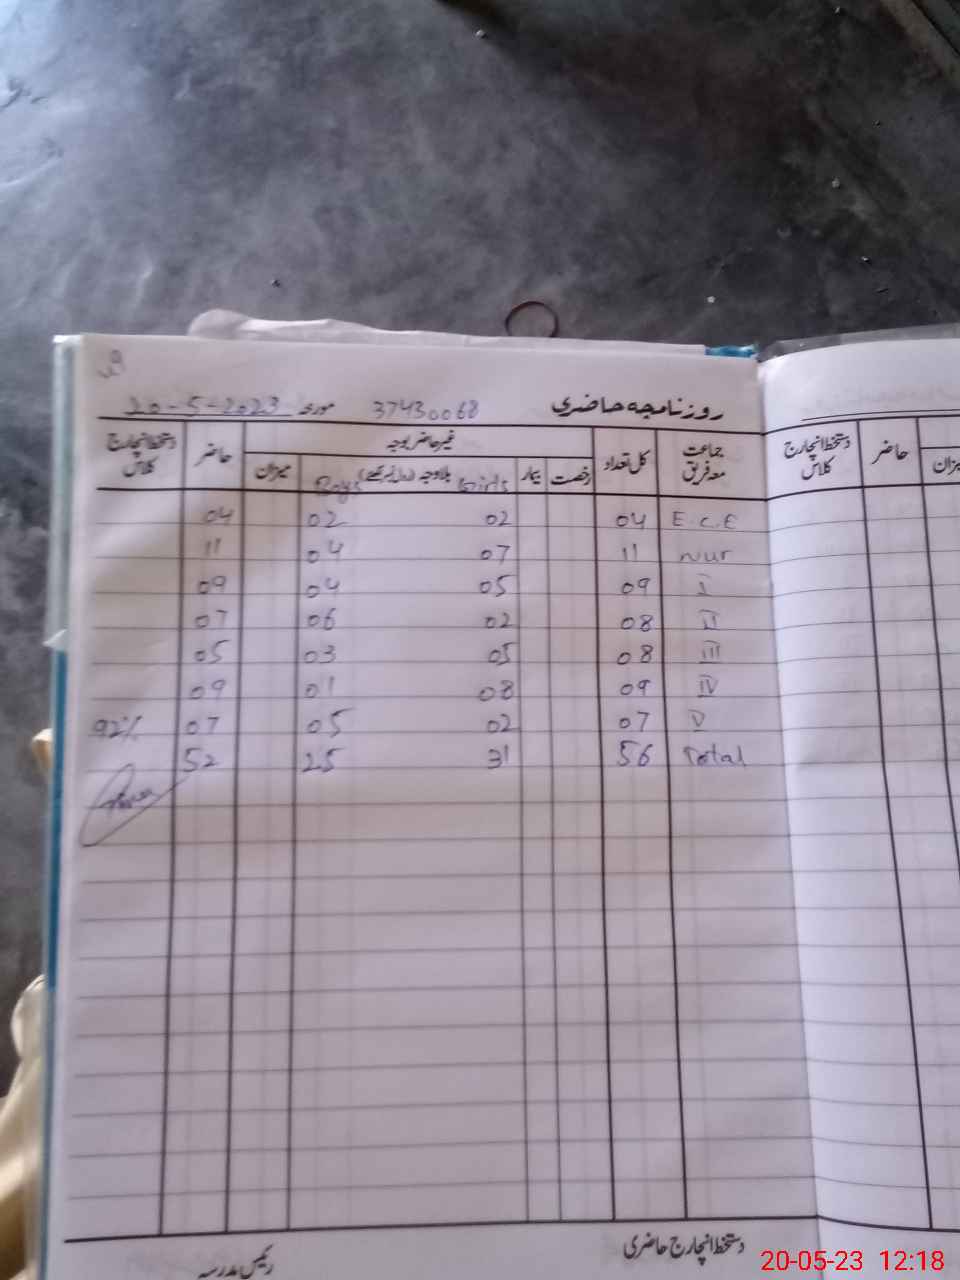 روزنامچہ حاضری 37430068 مورخہ 20-5-2023
جماعت معہ فریق کل تعداد غیر حاضر بوجہ حاضر دستخط انچارج کلاس
رخصت بیمار Girls بلاوجہ Boys میزان
E.C.E 04 02 02 04
Nur 11 07 04 11
I 09 05 04 09
II 08 02 06 07
III 08 05 03 05
IV 09 08 01 09
V 07 02 05 07 92%
Total 56 31 25 52
دستخط انچارج حاضری رئیس مدرسہ
حاضر دستخط انچارج کلاس
20-05-23 12:18